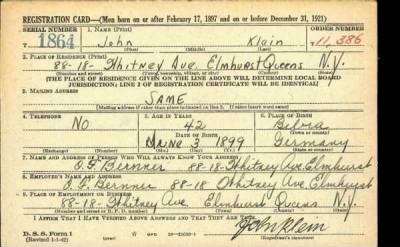 REGISTRATION CARD—(Men born on or after February 17, 1897 and on or before December 31, 1921)
SERIAL NUMBER 1. NAME (Print) ORDER NUMBER
1864 John Klein 11,386
(First) (Middle) (Last)
2. PLACE OF RESIDENCE (Print)
88-18- Whitney Ave. Elmhurst Queens N.Y.
(Number and street) (Town, township, village, or city) (County) (State)
[THE PLACE OF RESIDENCE GIVEN ON THE LINE ABOVE WILL DETERMINE LOCAL BOARD
JURISDICTION; LINE 2 OF REGISTRATION CERTIFICATE WILL BE IDENTICAL]
3. MAILING ADDRESS
SAME
[Mailing address if other than place indicated on line 2. If same insert word same]
4. TELEPHONE 5. AGE IN YEARS 6. PLACE OF BIRTH
NO 42
DATE OF BIRTH (Town or county)
JUNE 3 1899 Germany
(Exchange) (Number) (Mo.) (Day) (Yr.) (State or country)
7. NAME AND ADDRESS OF PERSON WHO WILL ALWAYS KNOW YOUR ADDRESS
88-18- Whitney Ave. Elmhurst
8. EMPLOYER'S NAME AND ADDRESS
88-18 Whitney Ave. Elmhurst
9. PLACE OF EMPLOYMENT OR BUSINESS
88-18- Whitney Ave. Elmhurst Queens N.Y.
(Number and street or R. F. D. number) (Town) (County) (State)
I AFFIRM THAT I HAVE VERIFIED ABOVE ANSWERS AND THAT THEY ARE TRUE.
John Klein
D. S. S. Form 1
(Revised 1-1-42) (over) (Registrant's signature)